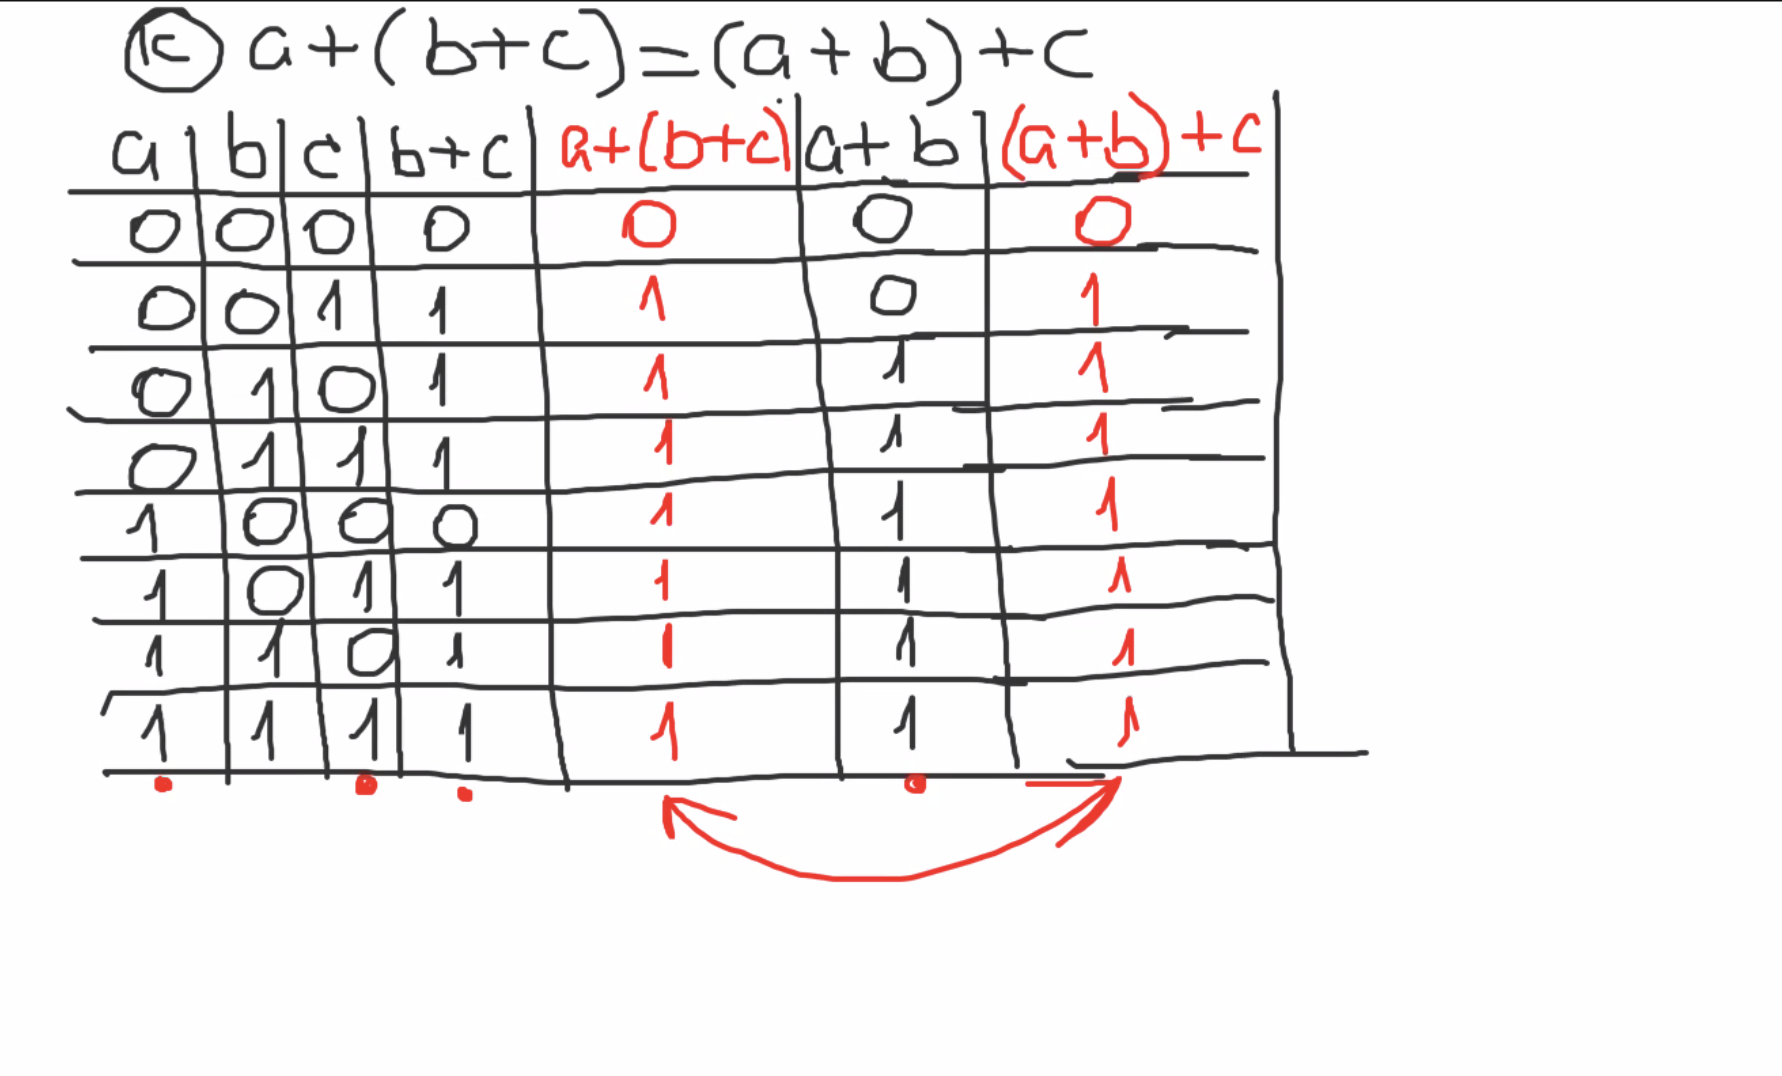 ⓒ a+(b+c)=(a+b)+c
a b c b+c a+(b+c) a+b (a+b)+c
0 0 0 0 0 0 0
0 0 1 1 1 0 1
0 1 0 1 1 1 1
0 1 1 1 1 1 1
1 0 0 0 1 1 1
1 0 1 1 1 1 1
1 1 0 1 1 1 1
1 1 1 1 1 1 1